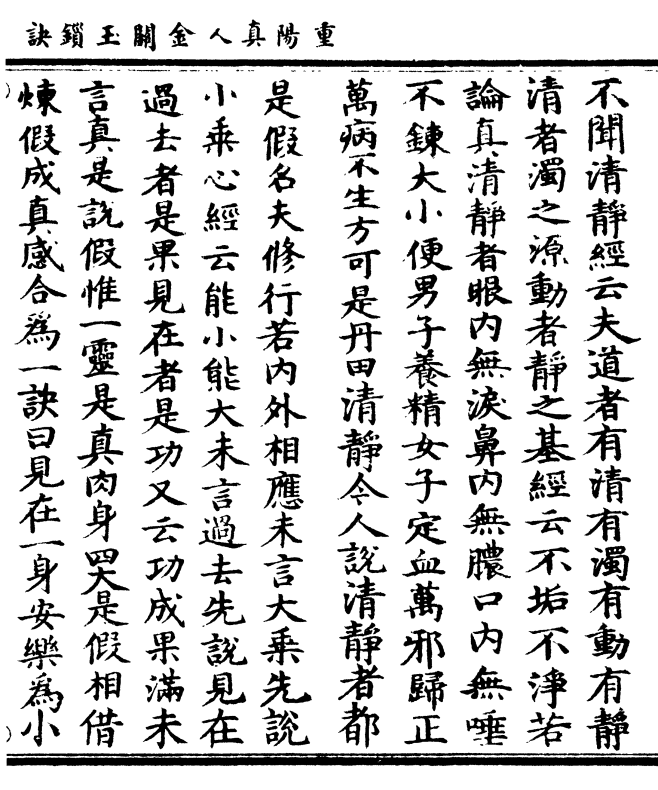 重陽真人金關玉鎖訣
不聞清靜經云夫道者有清有濁有動有靜
清者濁之源動者靜之基經云不垢不淨若
論真清靜者眼內無淚鼻內無膿口內無唾
不鍊大小便男子養精女子定血萬邪歸正
萬病不生方可是丹田清靜令人說清靜者都
是假名夫修行若內外相應未言大乘先說
小乘心經云能小能大未言過去先說見在
過去者是果見在者是功又云功成果滿未
言真是說假惟一靈是真肉身四大是假相借
煉假成真感合為一訣曰見在一身安樂為小